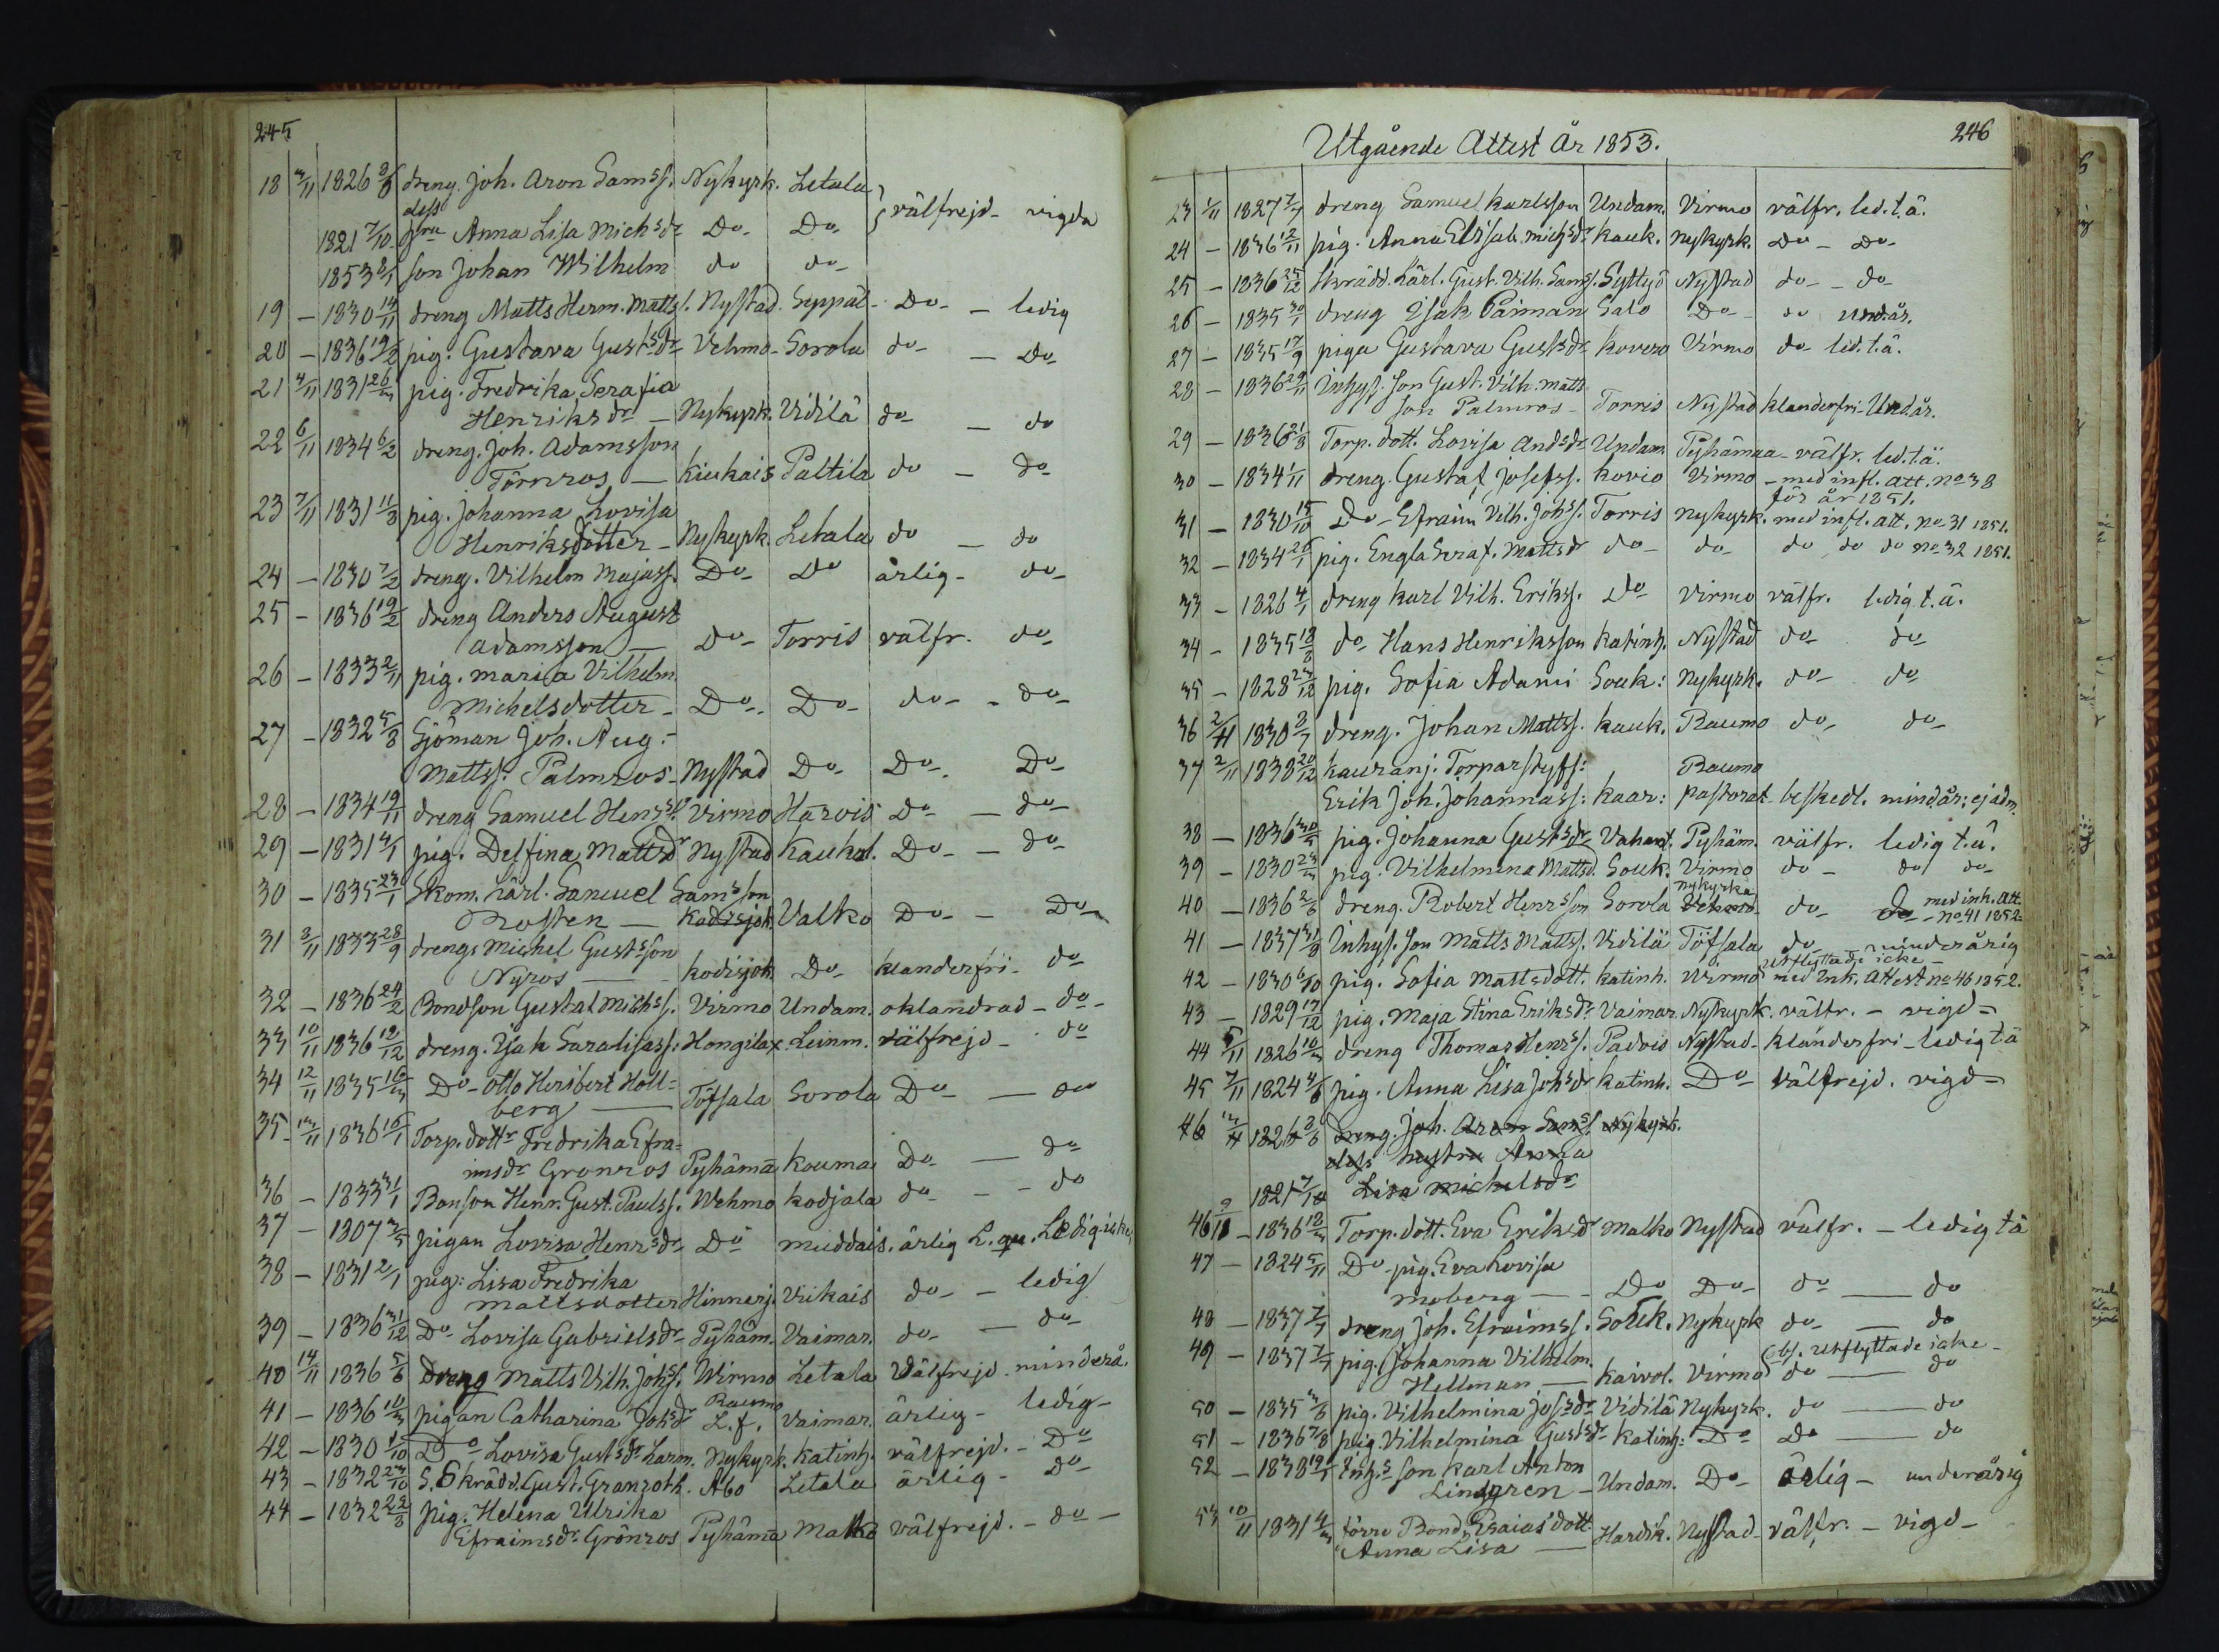 245
18 3/11 1826 8/6 dreng. Joh. Aron Samss. Nykyrk. Letala
dess
1821 7/10 hru Anna Lisa Michsdr Do- Do- } välfrejd- vigda
1853 8/1 son Johan Wilhelm do do-
19 - 1830 14/11 dreng Matts Herm. Matts. Nystad. Seppäl- Do- - ledig
20 - 1836 19/2 pig. Gustava Gustsdr Vehmo- Sorola do- - Do
21 4/11 1831 26/3 pig. Fredrika Serafia
Henriksdr - Nykyrk. Vidilä do- - do
22 6/11 1834 6/2 dreng. Joh. Adamsson
Törnros - Kiukais Paltila do - do-
23 7/11 1831 11/8 pig. Johanna Lovisa
Henriksdotter - Nykyrk. Letala do - do
24 - 1830 7/2 dreng. Vilhelm Majass. Do- Do ärlig- do-
25 - 1836 19/2 dreng Anders August
Adamsson - Do- Torris välfr. do-
26 - 1833 2/11 pig. Maria Vilhelm.
Michelsdotter - Do- Do- do- - do-
27 - 1832 5/8 Sjöman Joh. Aug.-
Mattss. Palmros- Nystad Do- Do- Do-
28 - 1834 19/11 dreng Samuel Henrss. Virmo Harvis Do- - do-
29 - 1831 4/1 pig. Delfina Mattsdr Nystad Kaukol. Do- - do-
30 - 1835 23/1 Skom. lärl. Samuel Samsson
Rosten - Kodisjok Valko Do- - Do-
31 8/11 1833 28/9 dreng. Michel Gustsson
Nyros - Kodisjok Do- klanderfri- do-
32 - 1836 24/2 Bondson Gustaf Michss. Virmo Undam. oklandrad- do-
33 10/11 1836 12/12 dreng. Isak Saralisass: Hongilax. Leinm. välfrejd- do
34 12/11 1835 16/3 Do- Otto Heribert Holl=
berg - Töfsala Sorola Do- - do
35 13/11 1836 16/1 Torp. dottr Fredrika Efra=
imsdr Grönros Pyhämä Kouma Do- - do
36 - 1833 31/1 Bonson Henr. Gust. Paulss. Wehmo Kodjala do- - - do
37 - 1807 3/5 pigan Lovisa Henrsdr Do Muddais. ärlig L. qu. Ledig icke,
38 - 1831 2/1 pig: Lisa Fredrika
Mattsdotter Hinnerj. Viikais do- - ledig
39 - 1836 31/12 Do- Lovisa Gabrielsdr Pyhäm. Vaimar. do- - do-
40 14/11 1836 5/6 Dreng Matts Vilh. Johss. Wirmo Letala Välfrejd. minderå.
41 - 1836 10/3 pigan Catharina Johsdr Raumo L.f. Vaimar. ärlig- ledig-
42 - 1830 1/10 Do- Lovisa Gustsdr Larm. Nykyrk. Katinh. välfrejd. - Do
43 - 1832 23/10 S. Skrädd. Gust. Granroth. Åbo Letala ärlig- Do-
44 - 1832 22/8 pig. Helena Ulrika
Efraimsdr Grönros Pyhämä Malko välfrejd. - do -
246
Utgående Attest År 1853.
23 1/11 1827 7/7 dreng Samuel Karlsson Undam. Virmo välfr. led. t. ä.
24 - 1836 12/11 pig. Anna Elisab. Michsdr Kauk. Nykyrk. Do- Do-
25 - 1836 25/12 Skrädd. Lärl. Gust. Vilh. Sams. Syttyö Nystad do- - do
26 - 1835 30/1 dreng Isak Päiman Salo Do- do und.år.
27 - 1835 17/9 piga Gustava Gustsdr Kovero Virmo do- led. t. ä.
28 - 1836 29/11 Inhys. son Gust. Vilh. Matts
son Palmros- Torris Nystad klanderfri- Und.år.
29 - 1836 21/8 Torp. dott. Lovisa Andsdr Undam. Pyhämaa- välfr. led. t. ä.
30 - 1834 1/11 dreng. Gustaf Josefss. Kovio Virmo - med infl. att. no 38
för år 1851.
31 - 1830 15/10 Do- Efraim Vilh. Johss. Torris Nykyrk. med infl. att. no 31 1851.
32 - 1834 26/1 pig. Engla Seraf. Mattsdr do- do- do do do no 32 1851.
33 - 1826 4/1 dreng Karl Vilh. Erikss. Do Virmo välfr. ledig t. ä.
34 - 1835 18/8 do- Hans Henriksson Katinh. Nystad do- do-
35 - 1828 23/12 pig. Sofia Adami Souk: Nykyrk. do- do
36 2/11 1830 8/7 dreng. Johan Mattss. Kauk. Raumo do- do-
37 2/11 1838 20/12 Kauranj. Torparstyfs: Raumo
Erik Joh. Johannass: Kaar: pastorat- beskedl. mind.år: ej adm.
38 - 1836 30/5 pig. Johanna Gustsdr Vahant. Pyhäm. välfr. ledig t. ä.
39 - 1830 23/3 pig. Vilhelmina Mattsd. Souk. Virmo do- do do-
40 - 1836 2/6 dreng. Robert Henrsson Sorola Nykyrka Vehmo- do- do- med ink. att. no 41 1852.
41 - 1837 31/8 Inhys. son Matts Mattss. Vidilä Töfsala do- minderårig
utflyttade icke-
42 - 1830 6/10 pig. Sofia Mattsdott. Katinh. Virmo med Ink. Attest no 46 1852.
43 - 1829 17/12 pig. Maja Stina Eriksdr Vaimar. Nykyrk. välfr. - vigd-
44 5/11 1826 10/3 dreng Thomas Henrss. Padvis Nystad- klanderfri- ledig t ä
45 7/11 1824 4/6 pig. Anna Lisa Johsdr Katinh. Do- Välfrejd. vigd-
46 13/11 1826 8/6 dreng. Joh. Aron Samss. Nykyrk.
dess hustru Anna
1821 7/10 Lisa Michelsdr
46 9/11 - 1836 18/3 Torp. dott. Eva Eriksdr Malko Nystad välfr. - ledig t ä
47 - 1824 5/11 Do- pig. Eva Lovisa
Moberg - Do Do- do - do
48 - 1837 7/7 dreng Joh. Efraimss. Souk. Nykyrk do- - do
49 - 1837 7/7 pig. Johanna Vilhelm. Obs. utflyttade icke-
Hellman - Kaivol. Virmo do - do
50 - 1835 3/6 pig. Vilhelmina Josdr Vidilä Nykyrk. do - do
51 - 1836 7/8 pig. Vilhelmina Gustsdr Katinh: Do- Do - do
52 - 1838 19/5 Inhs son Karl Anton
Lindgren - Undam. Do- ärlig- underårig
53 10/11 1831 4/3 förre Bond. Esaias dott.
Anna Lisa - Hardik. Nystad- välfr. - vigd-